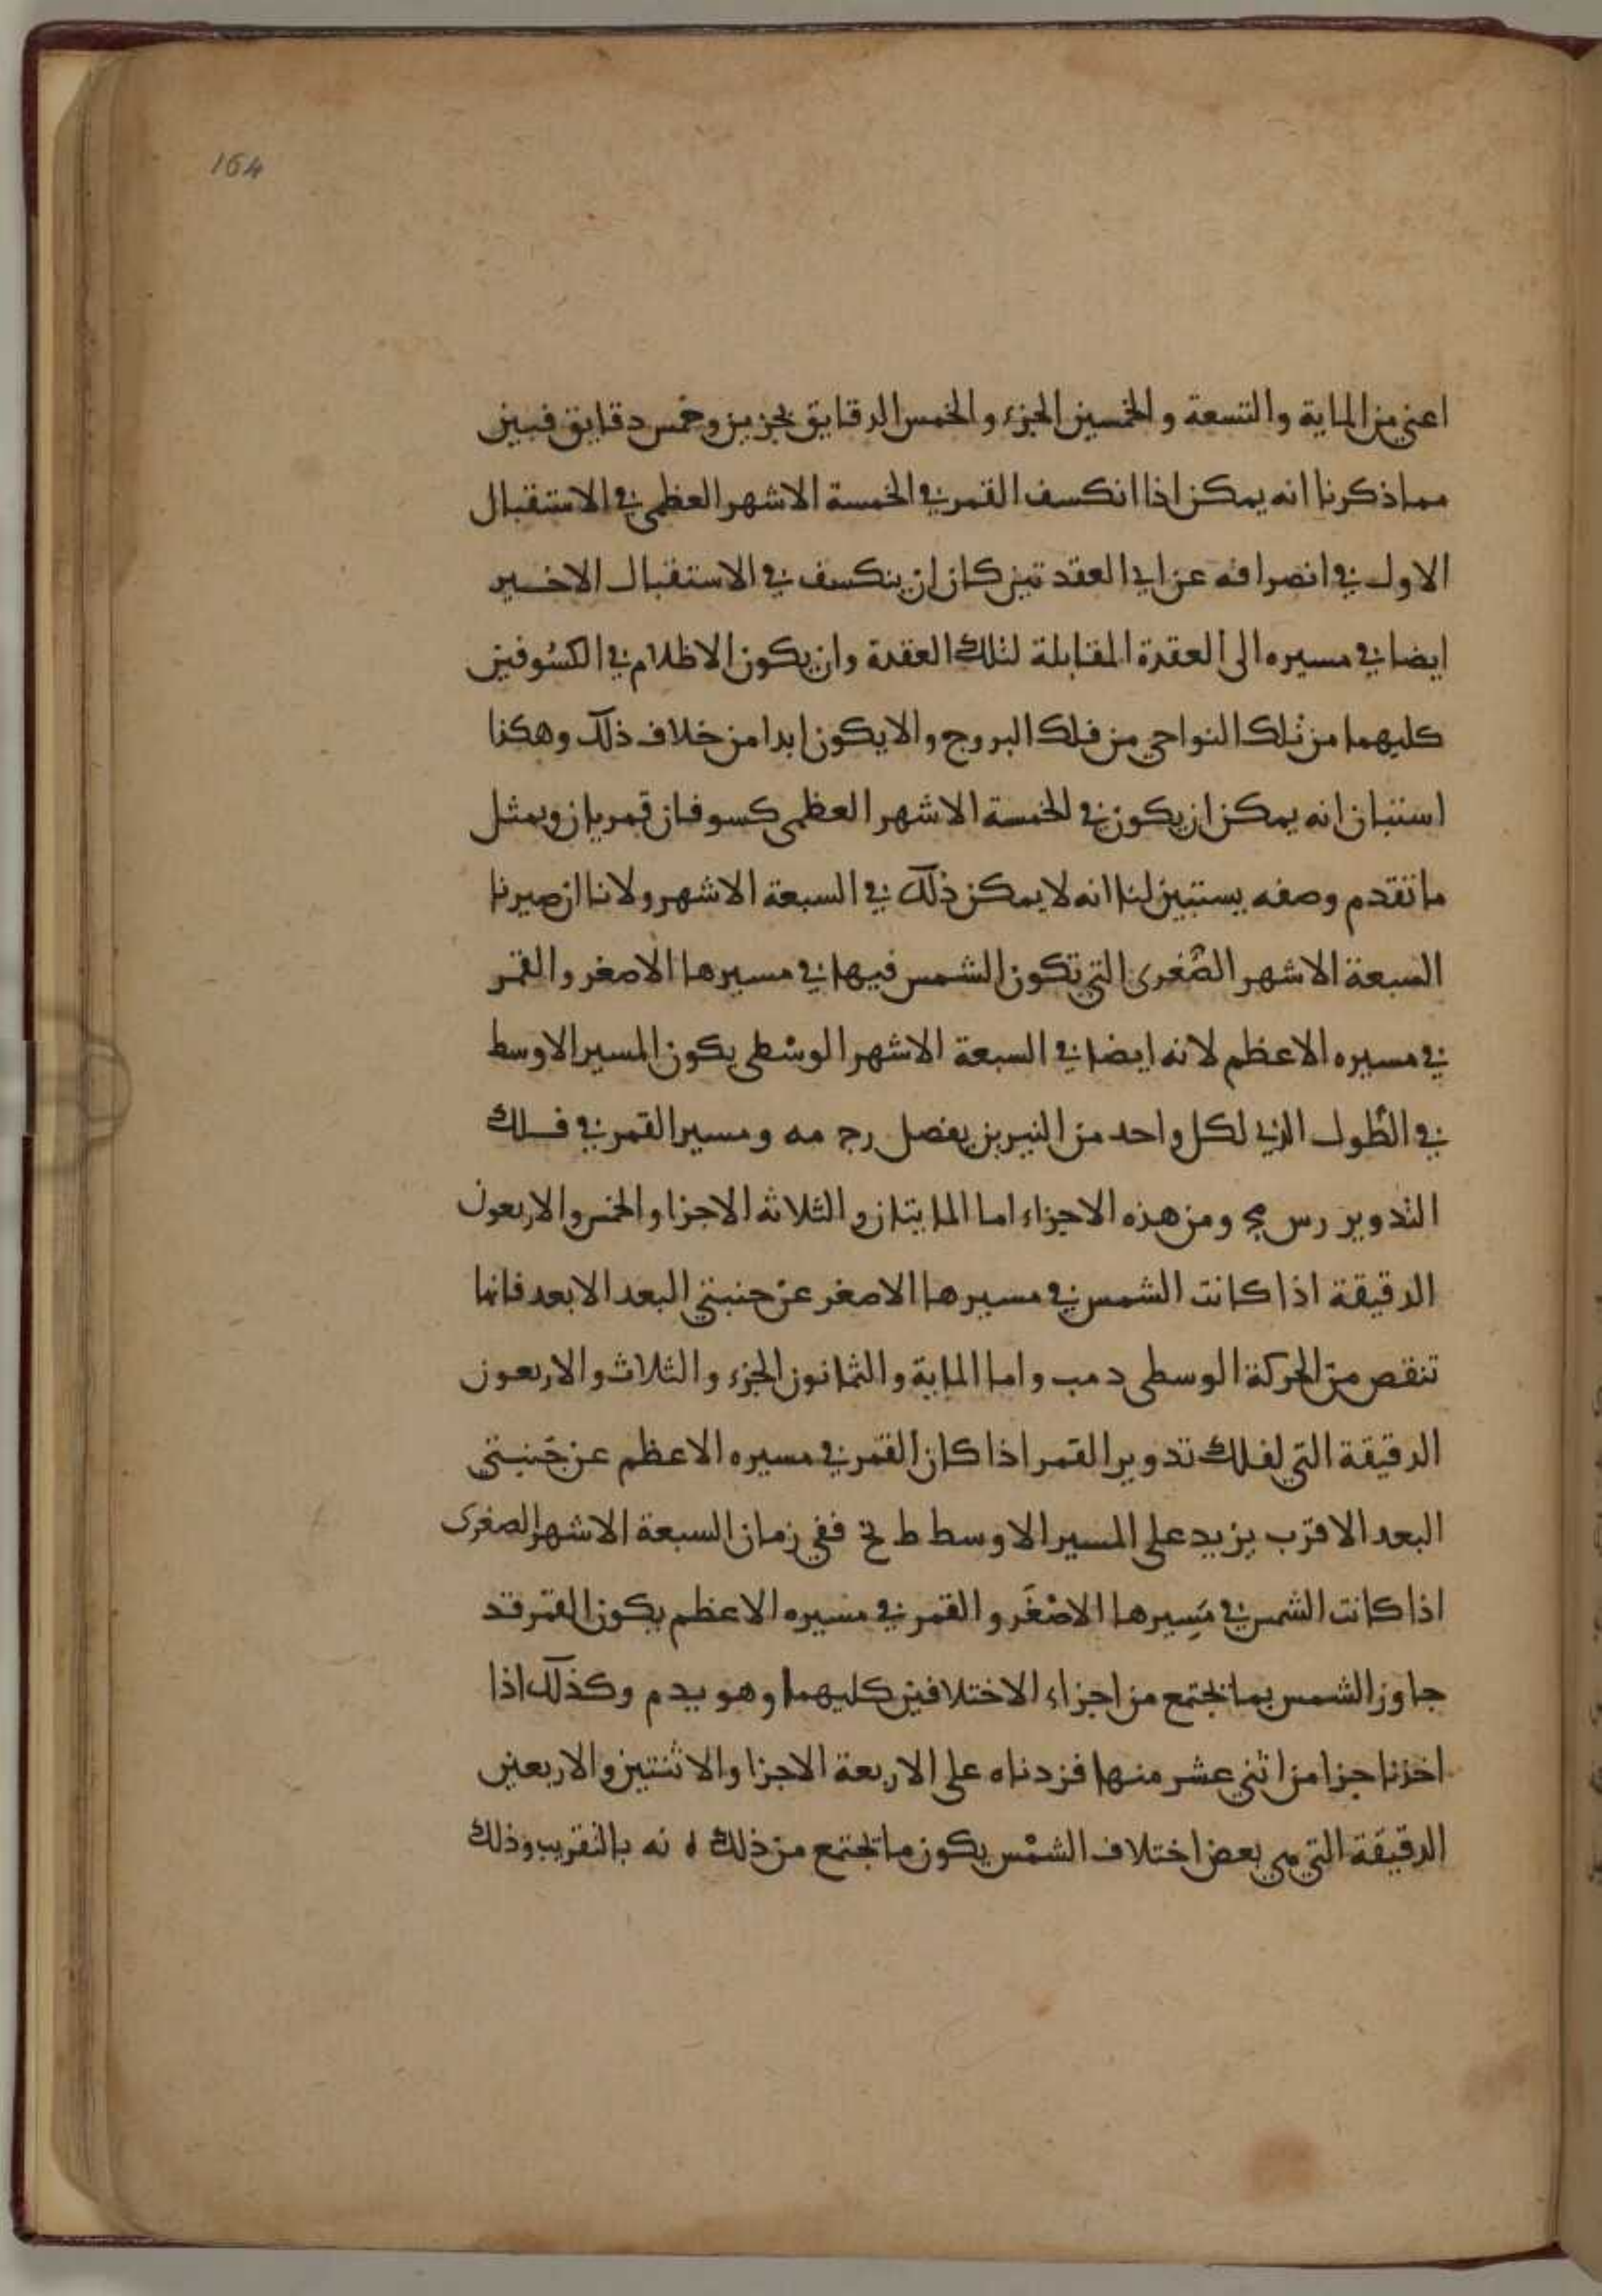 164
اعني من الماية والتسعة والخمسين الجزء والخمس الدقايق بجزين وخمس دقايق فبين
مما ذكرنا انه يمكن اذا انكسف القمر في الخمسة الاشهر العظمى في الاستقبال
الاول في انصرافه عن اي العقدتين كان ان ينكسف في الاستقبال الاخير
ايضا في مسيره الى العقدة المقابلة لتلك العقدة وان يكون الاظلام في الكسُوفين
كليهما من تلك النواحي من فلك البروج والا يكون ابدا من خلاف ذلك وهكذا
استبان انه يمكن ان يكون في الخمسة الاشهر العظمى كسوفان قمريان وبمثل
ما تقدم وصفه يستبين لنا انه لا يمكن ذلك في السبعة الاشهر ولانا ان صيرنا
السبعة الاشهر الصُغرى التي تكون الشمس فيها في مسيرها الاصغر والقمر
في مسيره الاعظم لانه ايضا في السبعة الاشهر الوسْطى يكون المسير الاوسط
في الطُول الذي لكل واحد من النيرين يفضل رج مه ومسير القمر في فلك
التدوير رس مج ومن هذه الاجزاء اما المايتان والثلاثه الاجزا والخمس والاربعون
الدقيقة اذا كانت الشمس في مسيرها الاصغر عن جنبتي البعد الابعد فانها
تنقص من الحركة الوسطى د مب واما الماية والثمانون الجزء والثلاث والاربعون
الدقيقة التي لفلك تدوير القمر اذا كان القمر في مسيره الاعظم عن جَنبتي
البعد الاقرب يزيد على المسير الاوسط ط نح ففي زمان السبعة الاشهر الصغرى
اذا كانت الشمس في مَسِيرها الاصْغَر والقمر في مسيره الاعظم يكون القمر قد
جاوز الشمس بما يجتمع من اجزاء الاختلافين كليهما وهو يد م وكذلك اذا
اخذنا جزا من اثني عشر منها فزدناه على الاربعة الاجزا والاثنتين والاربعين
الدقيقة التي هي بعض اختلاف الشمْس يكون ما تجتمع من ذلك ه نه بالتقريب وذلك